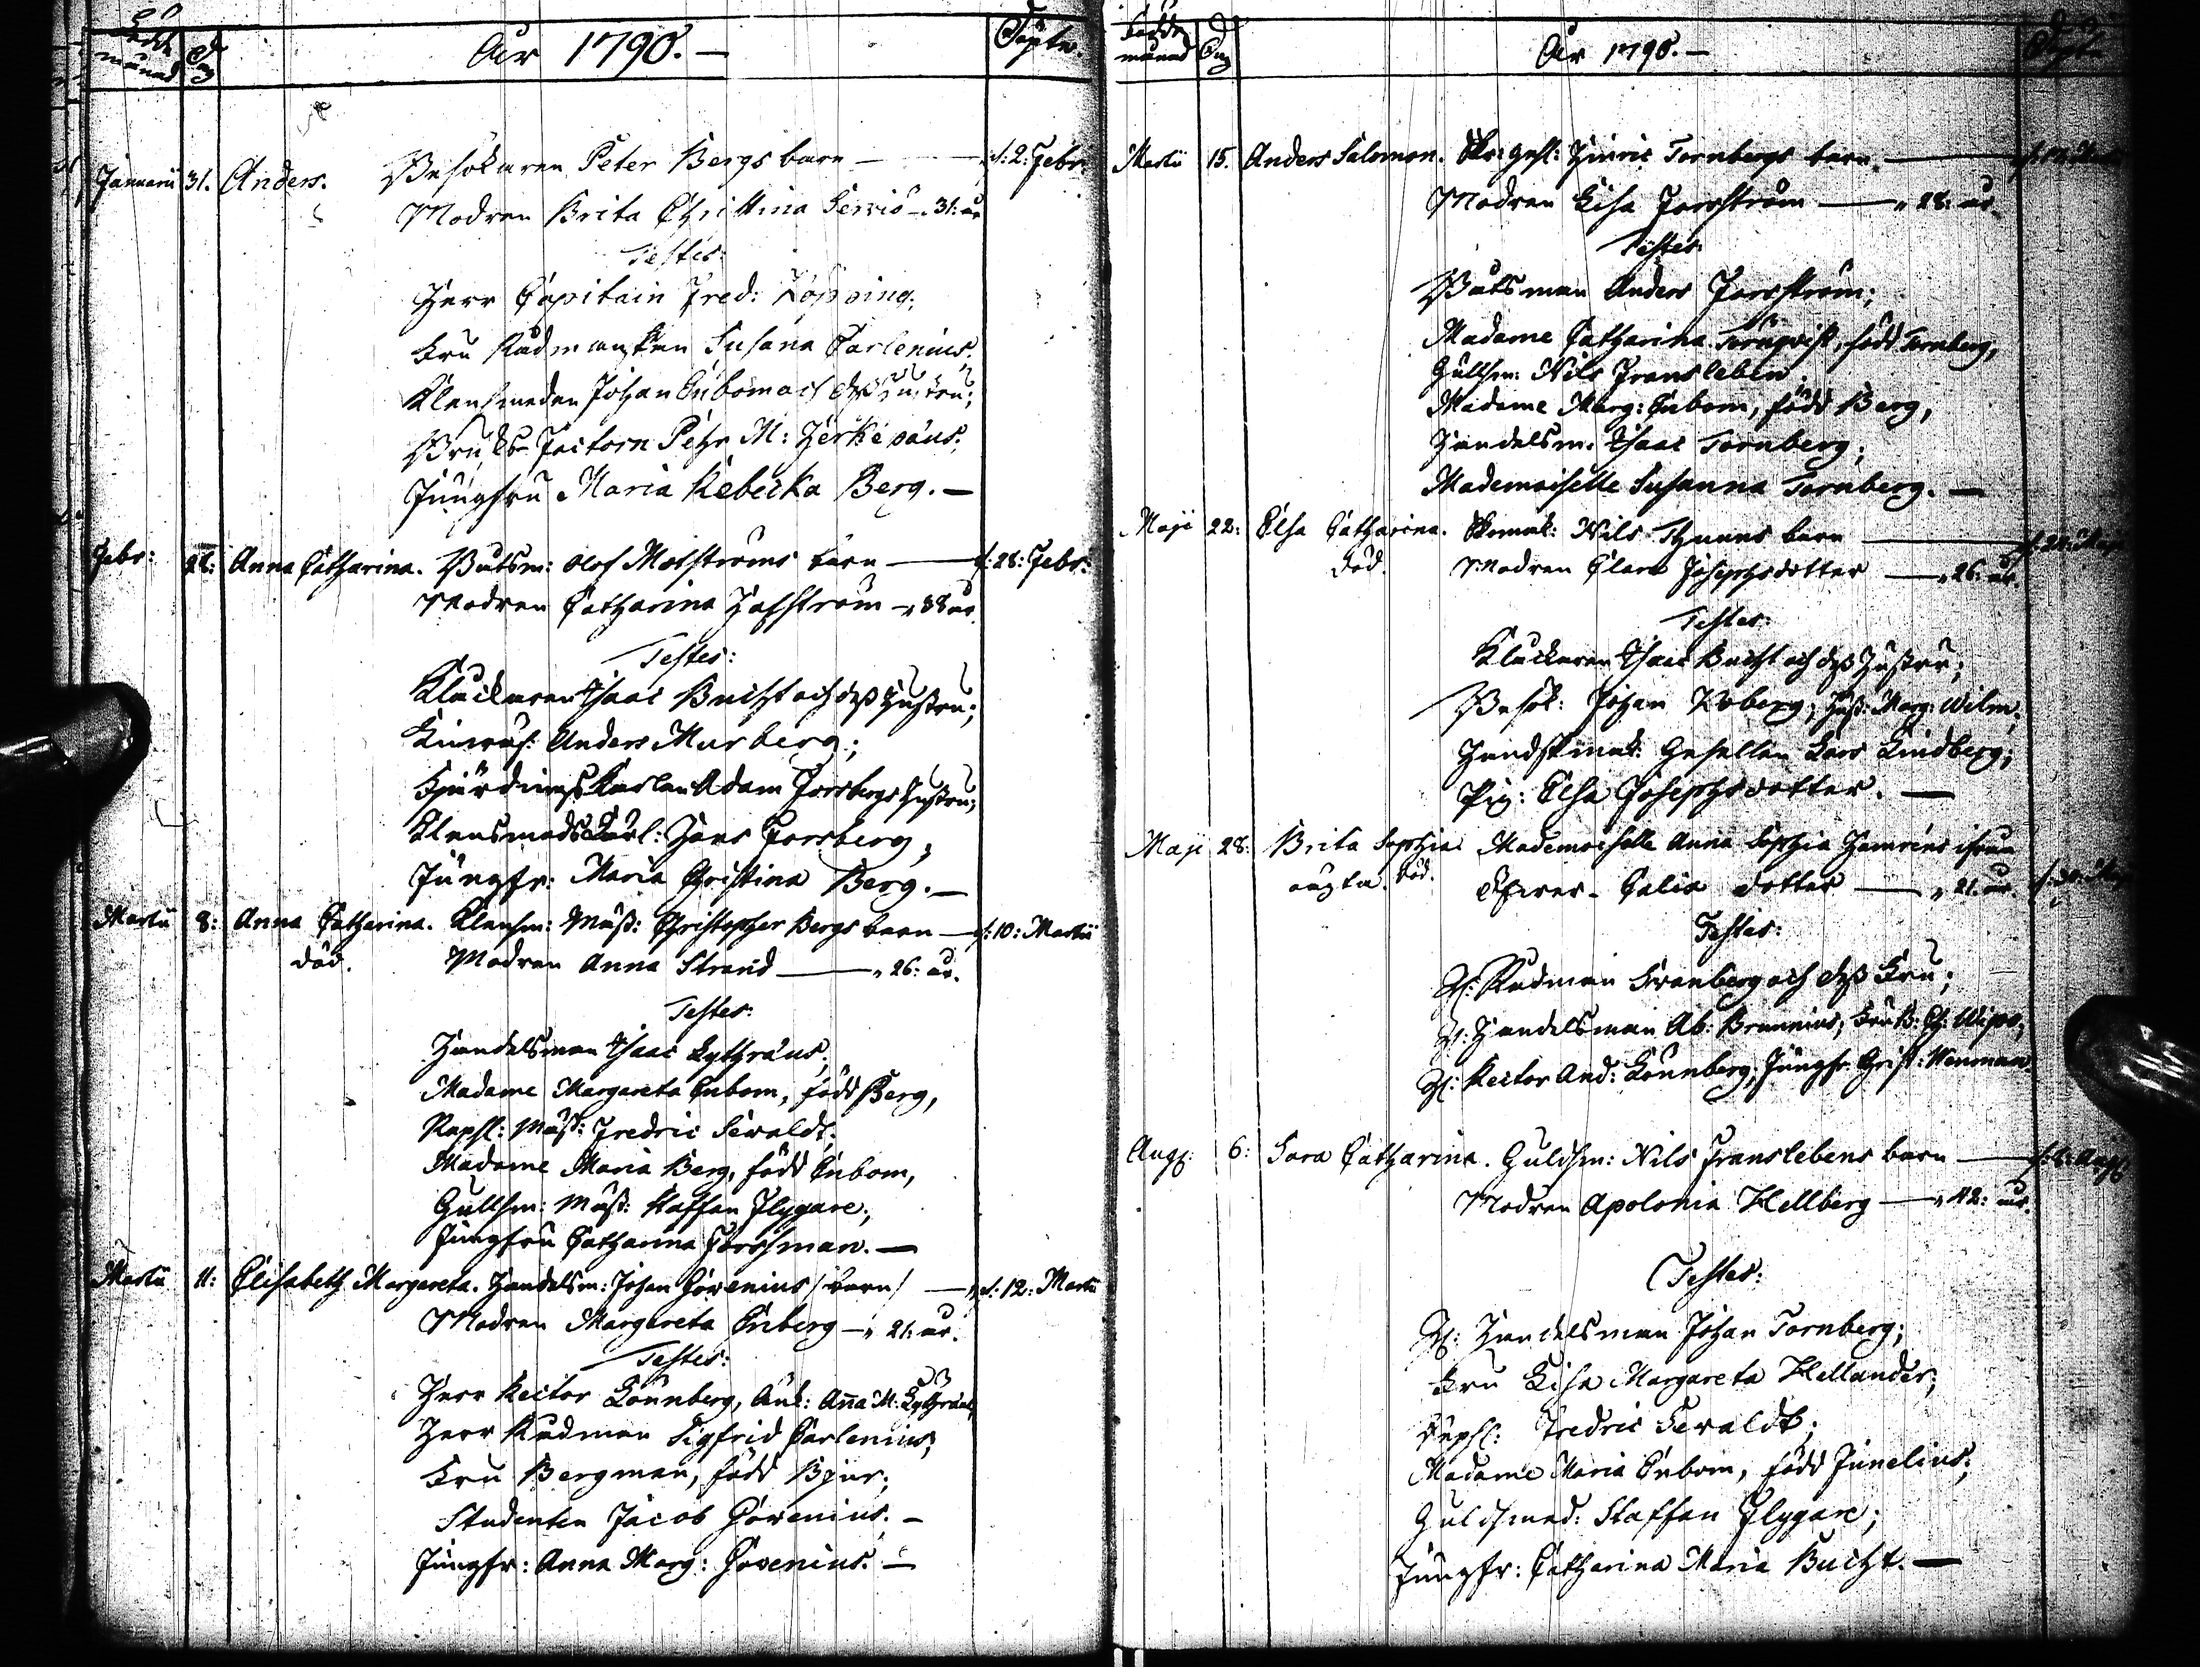 Född månad Dag År 1790. — Döpte.
Januarii 31. Anders. Besökaren Peter Bergs barn — d: 2: Febr:
Modren Brita Christina — 31: år
Testes:
Herr Capitain Fred: Köpping;
Fru Rådmanskan Susana Carlenius;
Klensmeden Johan Enbom och deß Hustru;
Bruks-Factorn Pehr M: Herkepæus;
Jungfru Maria Rebecka Berg. —
Febr: Anna Catharina. Båtsm: Olof Motströms barn — d: 28: Febr:
Modren Catharina Hafström — 38 år.
Testes:
Kluckaren Isaac Bucht och deß Hustru;
Anders Murberg;
Fjärdings Karlen Adam Forsbergs Hustru;
Hans Forsberg;
Jungfr: Maria Christina Berg. —
Martii 8: Anna Catharina. Klensm: Mäst: Christopher Bergs barn — d: 10: Martii
död. Modren Anna Strand — 26: år.
Testes:
Handelsman Isaac Lythræus;
Madame Margareta Enbom, född Berg,
Kopsl: Mäst: Fredric Sevaldt;
Madame Maria Berg, född Enbom,
Gullsm: Mäst: Staffan Flygare;
Jungfru Catharina Forssman. —
Martii 11: Elisabeth Margareta. Handelsm: Johan Govenius /barn/ — d: 12: Martii
Modren Margareta Enberg — 21: år.
Testes:
Herr Rector Lönnberg, Ank: Anna M: Lythræus,
Herr Rådman Sigfrid Carlenius;
Fru Bergman, född Bjur;
Studenten Jacob Govenius. —
Jungfr: Anna Marg: Govenius. —
Född månad Dag År 1790. —
Martii 15. Anders Salomon. Skr: Gesl: Hinric Tornbergs barn. —
Modren Lisa Forsström — 28: år.
Testes:
Båtsman Anders Forsström;
Madame Catharina Törnqvist, född Tornberg,
Gullsm: Nils Fransleben
Madame Marg: Enbom, född Berg,
Handelsm. Isaac Tornberg;
Mademoiselle Susanna Tornberg. —
Maji 22: Elsa Catharina. Skomak: Nils Thuens barn —
död. Modren Clara Josephsdotter — 26: år.
Testes:
Kluckaren Isaac Bucht och deß Hustru;
Besök: Johan Roberg; Hust: Marg: Wilm;
Handskmak: Gesellen Lars Lindberg;
Pig: Elsa Josephsdotter. —
Maji 28: Brita Sophia Mademoiselle Anna Sophia
oägta. död. dotter — 21: år.
Testes:
H: Rådman Svanberg och deß Fru;
H: Handelsman Ab: Brunnius;
H: Rector And: Lönnberg; Jungfr: Christ: Wenman.
Aug: 6: Sara Catharina. Guldsm: Nils Franslebens barn — d: 8: Aug:
Modren Apolonia Hellberg — 42: år.
Testes:
H: Handelsman Johan Tornberg;
Fru Lisa Margareta Hellander;
Kopsl: Fredric Sevaldt;
Madame Maria Enbom, född Junelius;
Guldsmed: Staffan Flygare;
Jungfr: Catharina Maria Bucht. —